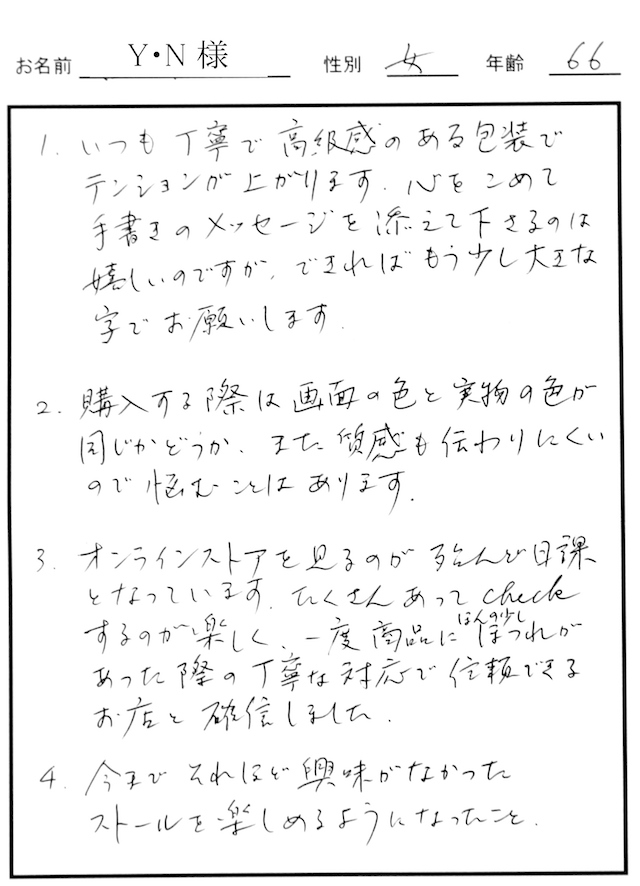 お名前 Y・N 様 性別 女 年齢 66
1. いつも丁寧で高級感のある包装で
テンションが上がります。心をこめて
手書きのメッセージを添えて下さるのは
嬉しいのですが、できればもう少し大きな
字でお願いします。
2. 購入する際は画面の色と実物の色が
同じかどうか、また質感も伝わりにくい
ので悩むことはあります。
3. オンラインストアを見るのが殆んど日課
となっています。たくさんあってcheck
するのが楽しく、一度商品にほんの少しほつれが
あった際の丁寧な対応で信頼できる
お店と確信しました。
4. 今までそれほど興味がなかった
ストールを楽しめるようになったこと。